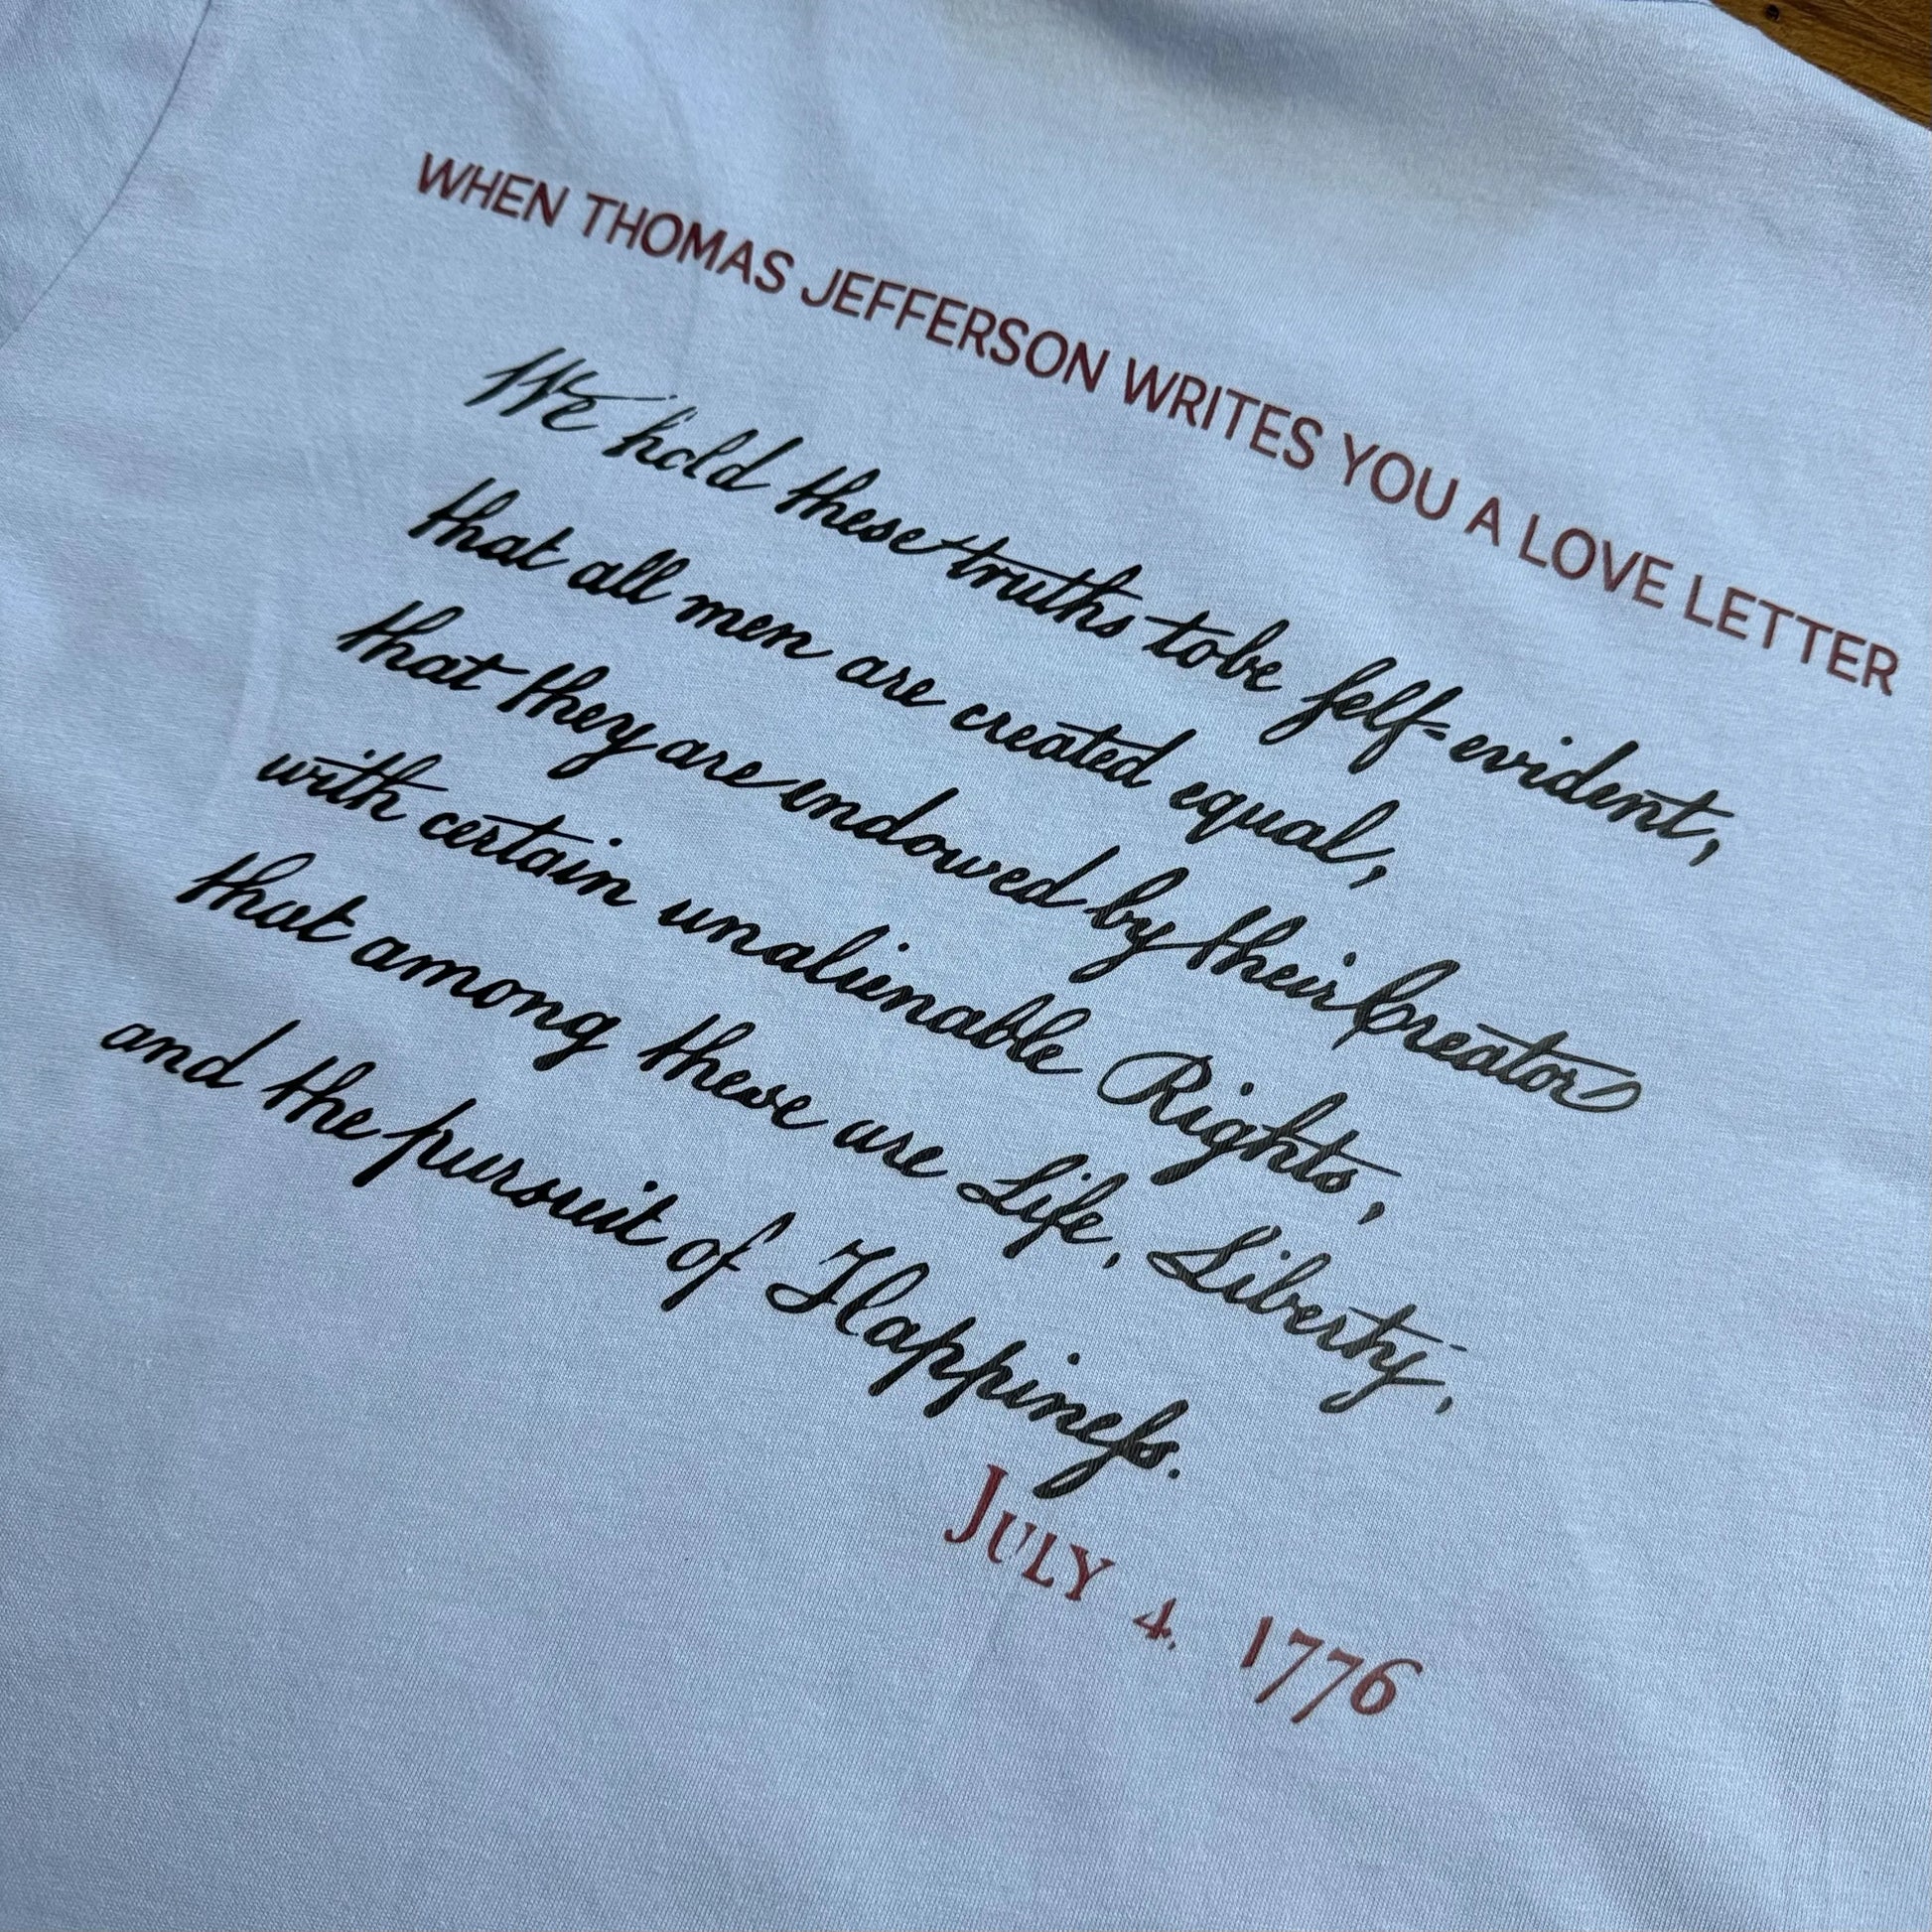 WHEN THOMAS JEFFERSON WRITES YOU A LOVE LETTER
We hold these truths to be ſelf-evident,
that all men are created equal,
that they are endowed by their Creator
with certain unalienable Rights,
that among these are Life, Liberty,
and the pursuit of Happineſs.
JULY 4, 1776